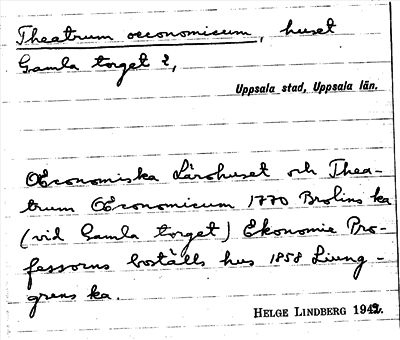 Theatrum oeconomicum, huset
Gamla torget 2,
Uppsala stad, Uppsala län.
Œconomiska Lärohuset och Thea-
trum Œconomicum 1770 Brolins ka
(vid Gamla torget) Ekonomie Pro-
fessorns boställs hus 1858 Liung-
grens ka.
HELGE LINDBERG 1942.